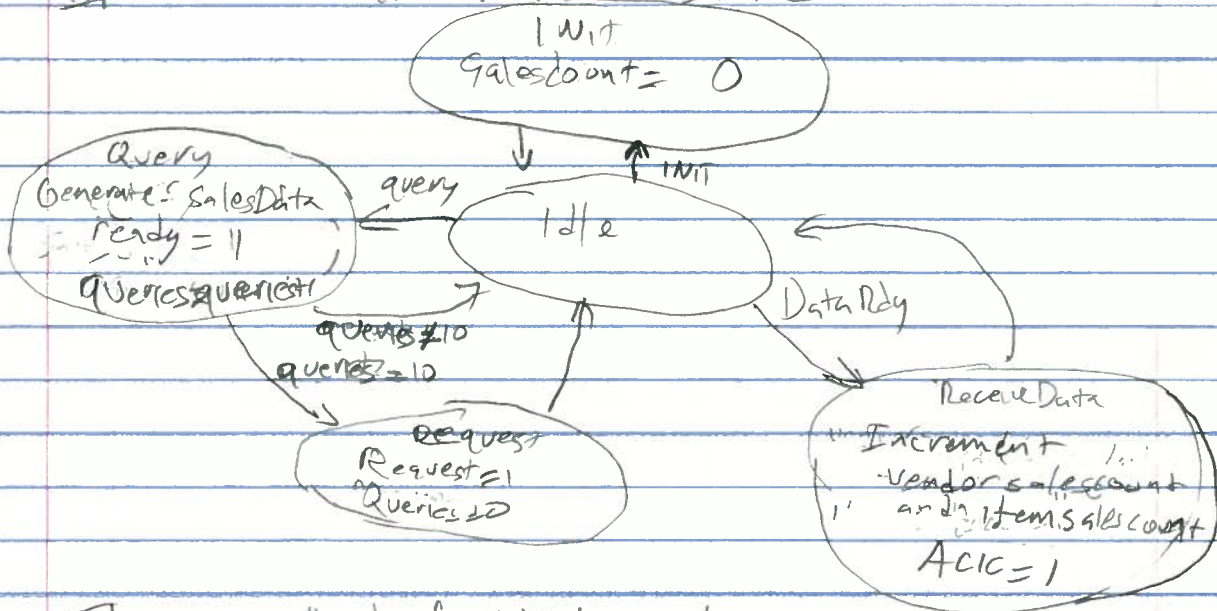 INit
Salescount = 0
INIT
Query
Generate: SalesData
ready = 1
queries=queries+1
query
Idle
DataRdy
queries≠10
queries=10
Request
Request=1
Queries=0
ReceiveData
Increment
vendor salescount
and item.salescount
ACK=1